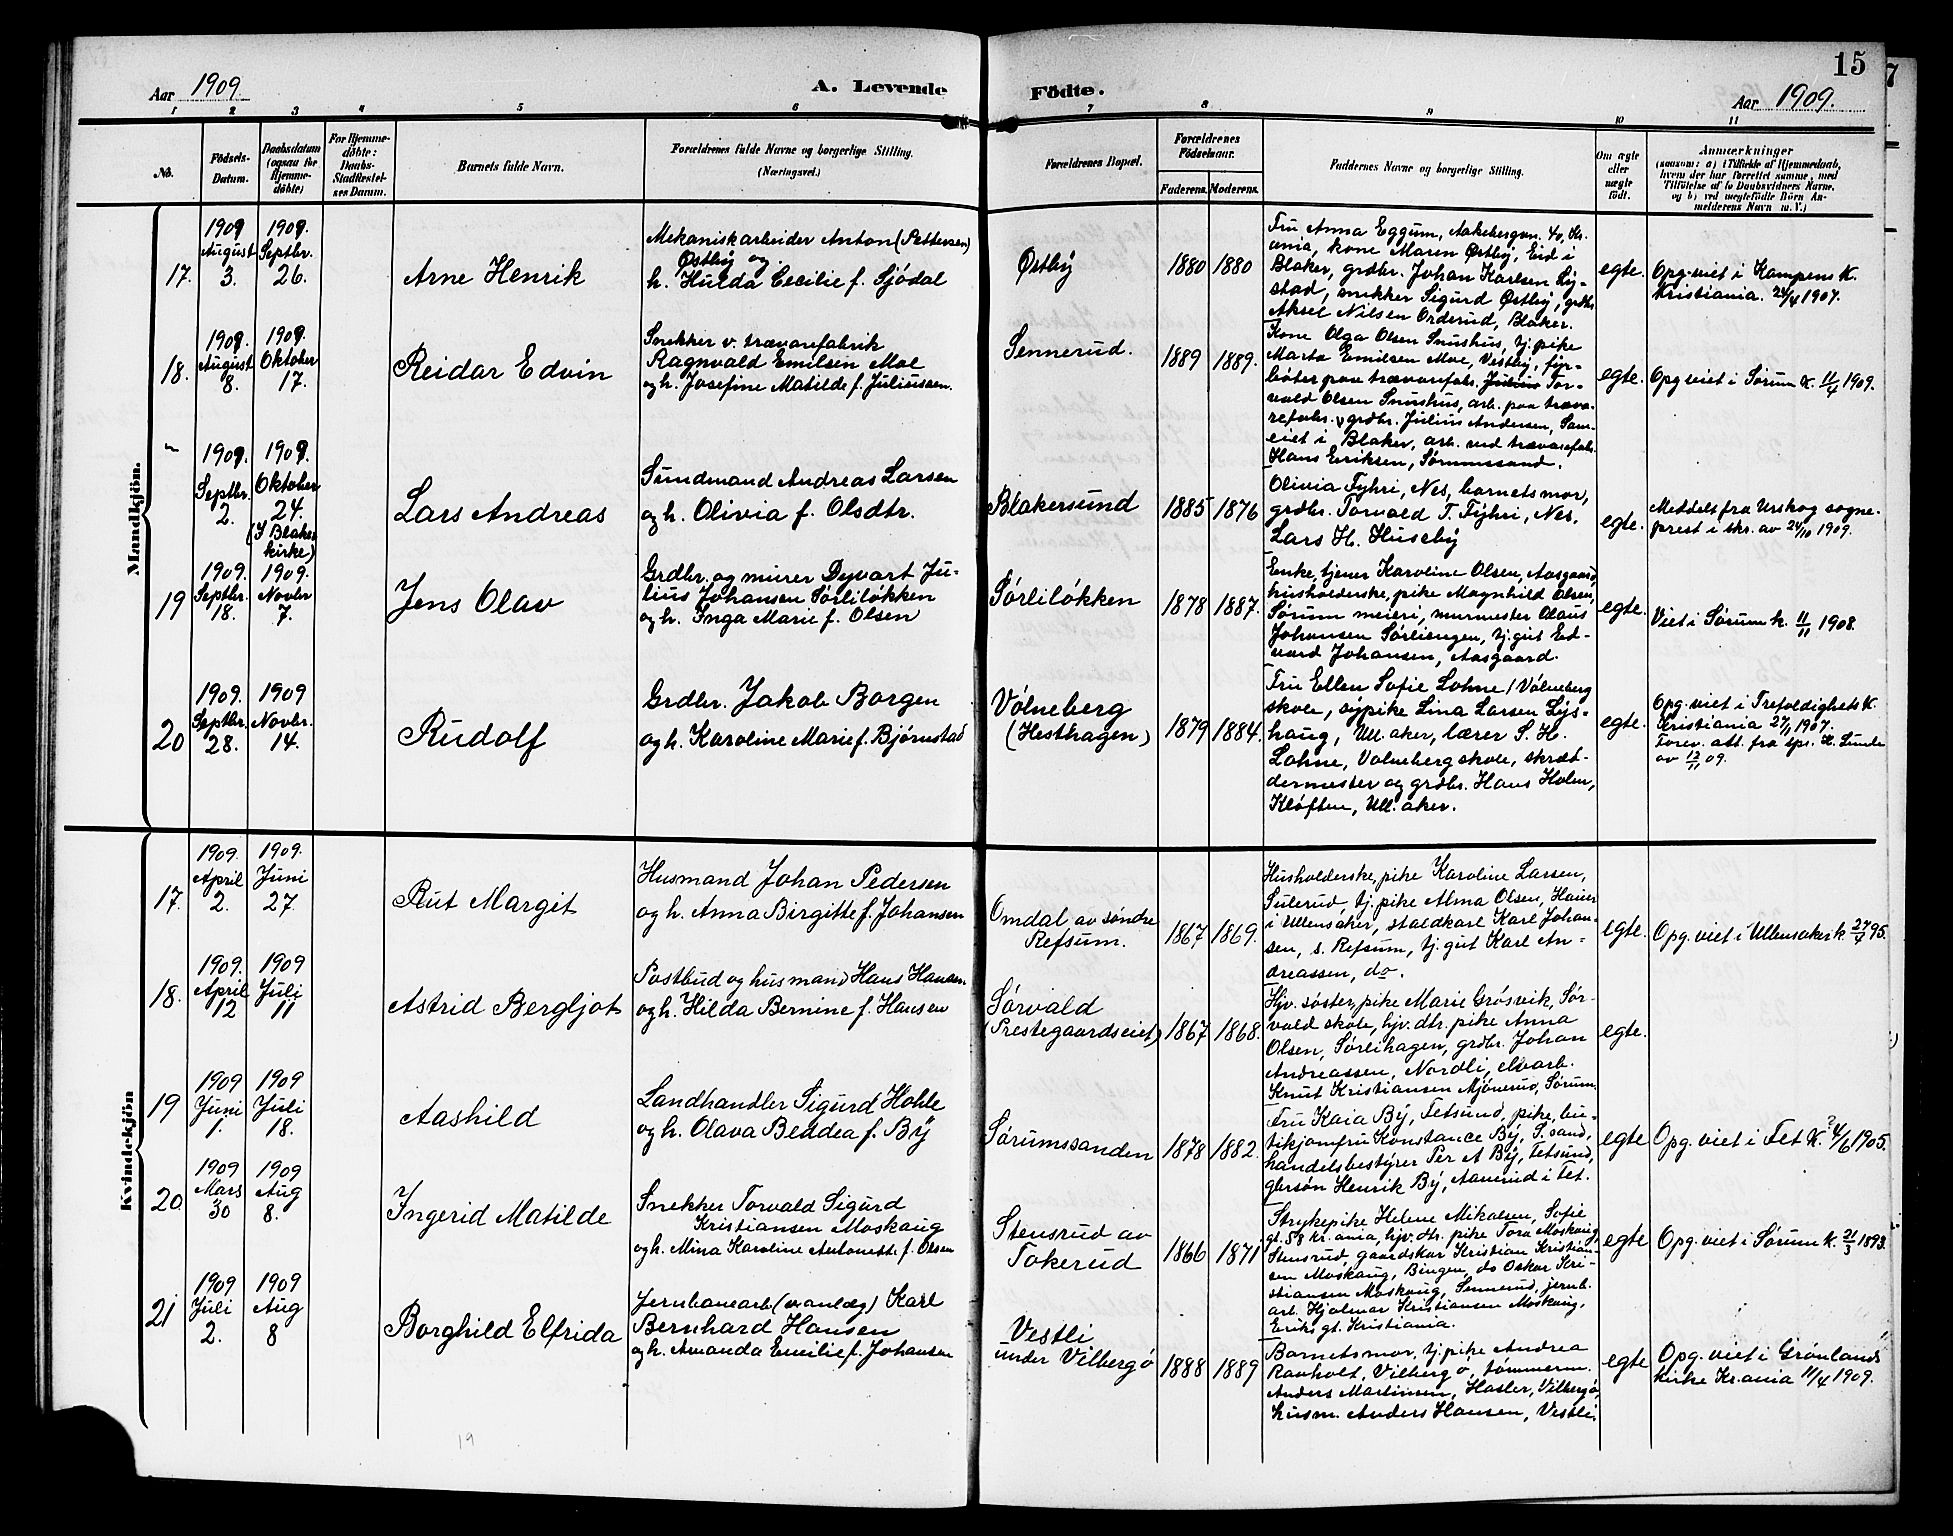 15
Aar 1909.
A. Levende
Födte.
Aar 1909.
1 2 3 4 5 6 7 8 9 10 11
No.
Födsels-
Datum.
Daabsdatum
(ogsaa for
Hjemme-
döbte)
For Hjemme-
döbte:
Daabs-
Stadfæstel-
ses Datum.
Barnets fulde Navn.
Forældrenes fulde Navne og borgerlige Stilling.
(Næringsvei.)
Forældrenes Bopæl.
Forældrenes
Födselsaar.
Faderens. Moderens.
Faddernes Navne og borgerlige Stilling.
Om ægte
eller
uægte
födt.
Anmærkninger
(saasom: a) i Tilfælde af Hjemmedaab,
hvem der har forrettet samme, med
Tilföielse af to Daabsvidners Navne.
og b) ved uægtefödte Börn An-
melderens Navn m. V.)
Mandkjön.
17.
1909
August
3.
1909.
Septbr.
26.
Arne Henrik
Mekaniskarbeider Anton (Pettersen)
Østby og
h. Hulda Cecilie f. Sjödal
Østby
1880
1880
Fru Anna Eggum, Aakebergvn. 40, Kr.
ania, kone Maren Østby, Eid i
Blaker, grdbr. Johan Karlsen Ly-
stad, snekker Sigurd Østby, grdbr.
Aksel Nilsen Orderud, Blaker.
egte.
Opg. viet i Kampens K.
Kristiania. 24/4 1907.
18.
1909.
August
8.
1909.
Oktober
17.
Reidar Edvin
Snekker v. trævarefabrik
Ragnvald Emilsen Moe
og h. Josefine Matilde f. Juliussen.
Sennerud.
1889
1889.
Kone Olga Olsen Snushus, tj. pike
Marta Emilsen Moe, Vestby, fyr-
böter paa trævarefabr. Julius Tor-
vald Olsen Snushus, arb. paa træva-
refabr. grdbr. Julius Andersen, Sam-
eiet i Blaker, arb. ved trævarefabr.
Hans Eriksen, Sørumssand.
egte.
Opg. viet i Sørum K. 11/4 1909.
"
1909.
Septbr.
2.
1909.
Oktober
24.
(I Blaker
kirke)
Lars Andreas
Sundmand Andreas Larsen
og h. Olivia f. Olsdtr.
Blakersund
1885
1876
Olivia Fyhri, Nes, barnets mor,
grdbr. Torvald T. Fyhri, Nes,
Lars H. Huseby
egte.
Meddelt fra Urskog sogne-
prest i skr. av 24/10 1909.
19
1909.
Septbr.
18.
1909.
Novbr
7.
Jens Olav
Grdbr. og murer Dyvart Ju-
lius Johansen Sørliløkken
og h. Inga Marie f. Olsen
Sørliløkken
1878
1887.
Enke, tjener Karoline Olsen, Aasgaard,
husholderske, pike Magnhild Olsen,
Sørum meieri, murmester Olaus
Johansen Sørliengen, tj. gut Ed-
vard Johansen, Aasgaard.
egte.
Viet i Sørum k. 11/11 1908.
20
1909.
Septbr.
28.
1909
Novbr.
14.
Rudolf
Grdbr. Jakob Borgen
og h. Karoline Marie f. Bjørnstad
Vølneberg
(Hesthagen)
1879
1884.
Fru Ellen Sofie Lohne, Vølneberg
skole, sypike Lina Larsen Lys-
haug, Ull.aker, lærer S. H.
Lohne, Vølneberg skole, skræd-
dermester og grdbr. Hans Holen,
Kløften, Ull.aker.
egte.
Opg. viet i Trefoldighets K.
Kristiania 27/1 1907.
Forev. att. fra spr. H. Sunde
av 12/11 09.
Kvindekjön
17.
1909.
April
2.
1909.
Juni
27
Rut Margit
Husmand Johan Pedersen
og h. Anna Birgitte f. Johansen
Omdal av søndre
Refsum.
1867
1869.
Husholderske, pike Karoline Larsen,
Sulerud, tj. pike Alma Olsen, Hauer
i Ullensaker, staldkarl Karl Johan-
sen, s. Refsum, tj. gut Karl An-
dreassen, do.
egte.
Opg. viet i Ullensaker k. 27/4 95.
18.
1909.
April
12
1909
Juli
11
Astrid Bergljot
Postbud og husmand Hans Hansen
og h. Hilda Bernine f. Hansen
Sørvald
(Prestegaardseiet)
1867
1868.
Hjv. søster, pike Marie Grøsvik, Sør-
vald skole, hjv. dtr. pike Anna
Olsen, Sørlihagen, grdbr. Johan
Andreassen, Nordli, elvarb.
Knut Kristiansen Mjønerud, Sørum.
egte.
19
1909
Juni
1.
1909
Juli
18.
Aashild
Landhandler Sigurd Hohle
og h. Olava Beddea f. By
Sørumssanden
1878
1882.
Fru Kaia By, Fetsund, pike, bu-
tikjomfru Konstance By, S.sand,
handelsbestyrer Per A By, Fetsund,
gbrsøn Henrik By, Aanerud i Fet.
egte
Opg. viet i Fet K. 24/6 1905.
20
1909
Mars
30
1909
Aug
8.
Ingerid Matilde
Snekker Torvald Sigurd
Kristiansen Moskaug
og h. Mina Karoline Antonette f. Olsen
Stensrud av
Tokerud
1866
1871
Strykepike Helene Mikalsen, Sofie
gt. 58 Kr.ania, hjv. dtr. pike Tora Moskaug,
Stensrud, gaardskar Kristian Kristian-
sen Moskaug, Bingen, do Oskar Kri-
stiansen Moskaug, Sennerud, jernb.
arb. Hjalmar Kristiansen Moskaug,
Eriks gt. Kristiania.
egte
Opg. viet i Sørum K. 21/3 1893.
21
1909
Juli
2.
1909
Aug
8
Borghild Elfrida
Jernbanearb (v anlæg) Karl
Bernhard Hansen
og h. Amanda Emilie f. Johansen
Vestli
under Vilbergø
1888
1889
Barnets mor, tj. pike Andrea
Ravholt, Vilberg ø, tømmerm.
Anders Martinsen, Hasler, Vilbergø,
husm. Anders Hansen, Vestli.
egte
Opg. viet i Grønlands
kirke Kr.ania 11/4 1909.
19